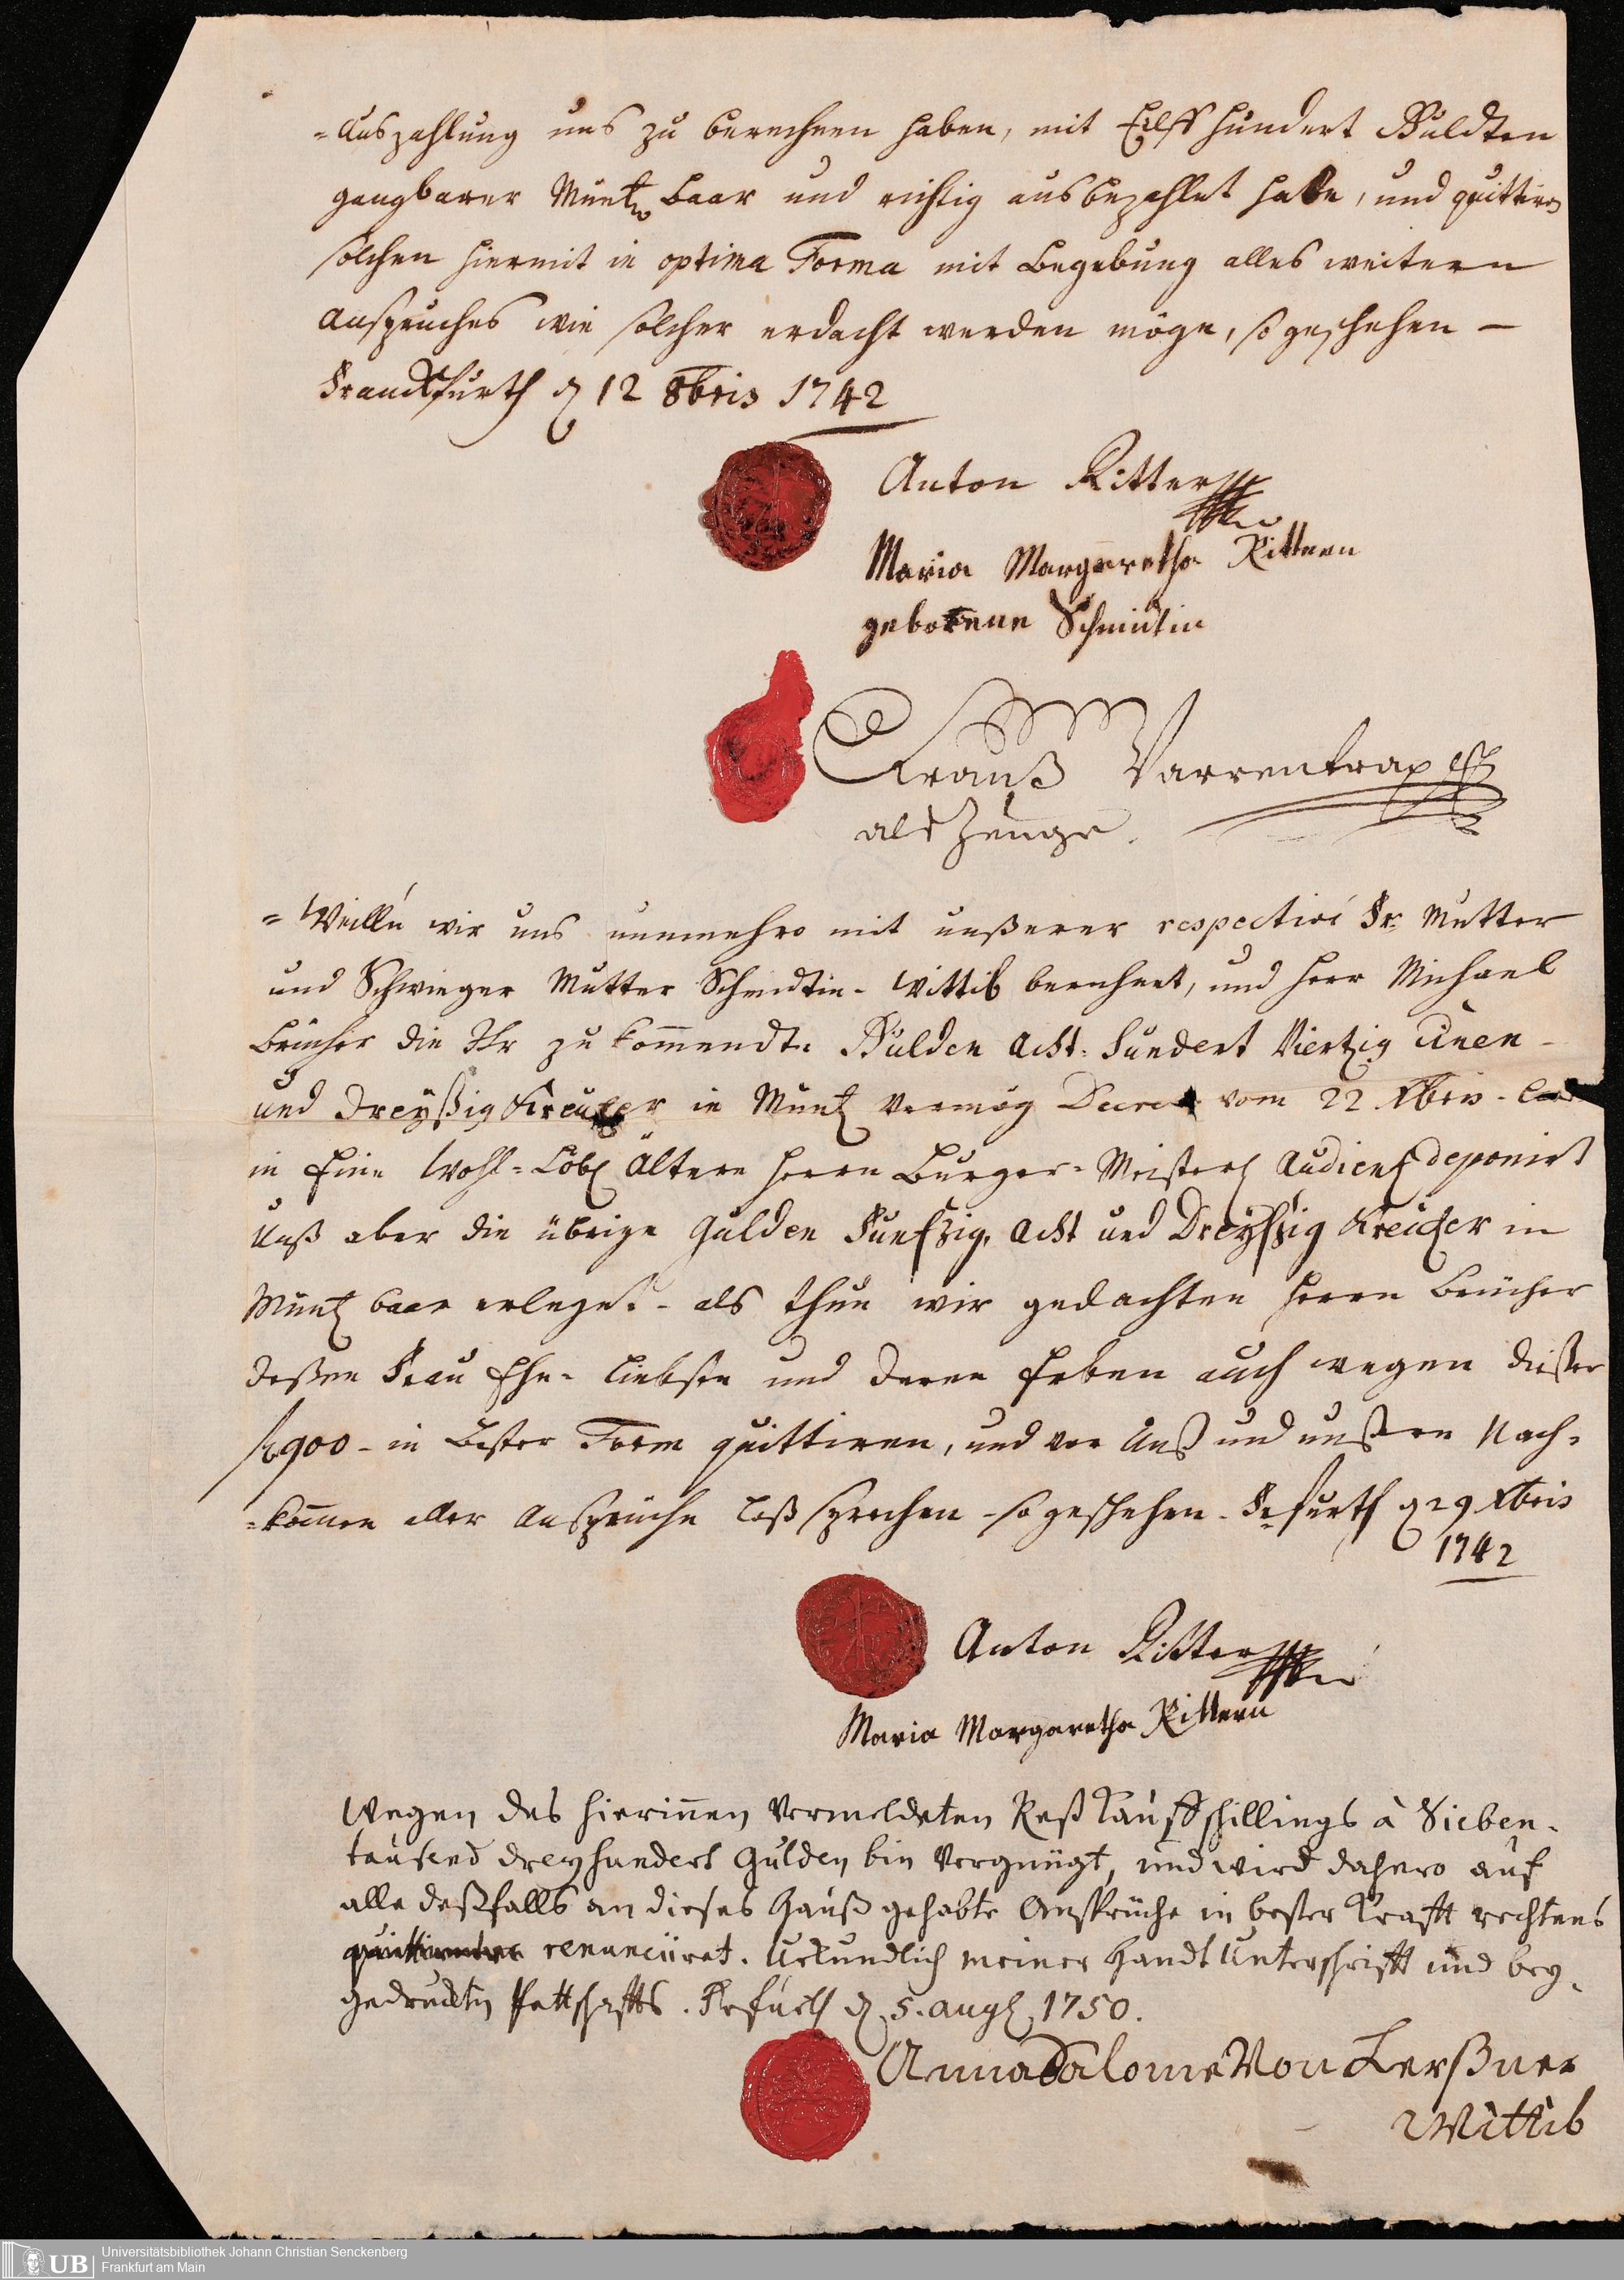 -Auszahlung uns zu berechnen haben, mit Eilff hundert Guldten
gangbarer Müntz baar und richtig ausbezahlet habe, und quittiren
solchen hiermit in optima Forma mit begebung alles weitern
Anspruches wie solcher erdacht werden möge, so geschehen –
Franckfurth d 12 8bris 1742
Anton Ritter
Maria Margaretha Rittern
geborene Schmidtin
Varrentrap
als Zeuge.
= wir uns nunmehro mit unßerer respectivé Fr. Mutter
und Schwieger Mutter Schmidtin- Wittib berechnet, und Herr Michael
Brücher die Ihr zu kommendte Gulden Acht-hundert Viertzig Einen-
und Dreyßig Kreutzer in Muntz vermög Decret vom 22 Xbris-
in Eine Wohl-Löbl Ältern Herrn Burger-Meisterl Audientz deponirt
Unß aber die übrige Gulden Funfzig, Acht und Dreyßig Kreutzer in
Muntz baar erleget- als thun wir gedachten Herrn Brücher
deßen Frau Ehe-Liebste und deren Erben auch wegen dießer
f 900- in bester Form quittiren, und vor Unß und unßern Nach-
-kom̄en aller Ansprüche loß sprechen - so geschehen - Frfurth d 29 Xbris
1742
Anton Ritter
Maria Margaretha Rittern
Wegen des hierin̄en Vermeldeten Rest Kauffschillings à Sieben-
tausend dreyhundert Gulden bin Vergnügt, und wird dahero auf
alle deßfalls an dieses Hauß gehabte Ansprüche in bester Krafft rechtens
renunciiret. Urkundlich meiner Handt Unterschrifft und bey-
gedruckten Pettschaffts. Frfurth d. 5. aug 1750.
Anna Salome Von Lerßner
Wittib
UB Universitätsbibliothek Johann Christian Senckenberg
Frankfurt am Main